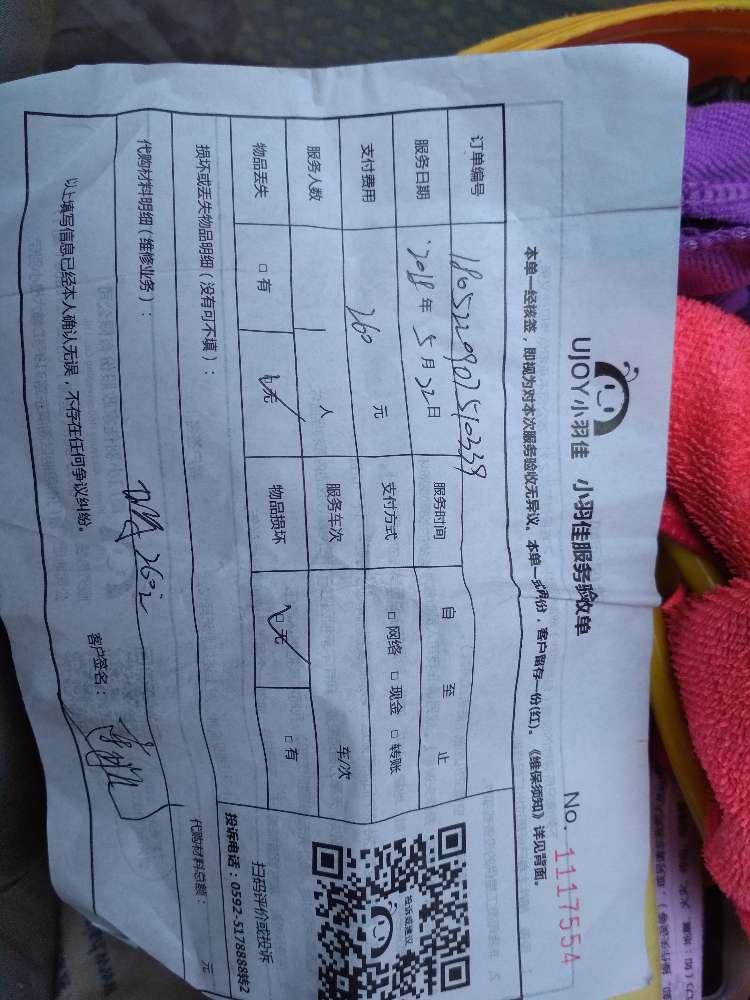 UJOY小羽佳 小羽佳服务验收单
No. 1117554
本单一经核签，即视为对本次服务验收无异议。本单一式两份，客户留存一份(红)。《维保须知》详见背面。
订单编号 1805220907510339
服务日期 2018年5月22日 服务时间 自 至 止
支付费用 260 元 支付方式 □网络 □现金 □转账
服务人数 1 人 服务车次 车/次
物品丢失 □有 □无 物品损坏 □无 □有
损坏或丢失物品明细（没有可不填）：
代购材料明细（维修业务）： 代购材料总额： 元
以上填写信息已经本人确认无误，不存在任何争议纠纷。 客户签名：
投诉或建议
扫码评价或投诉
投诉电话：0592-5178888转2